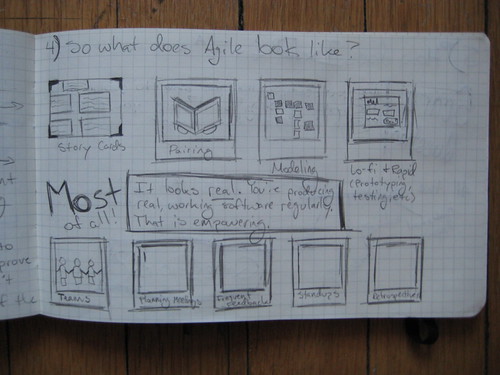 4) So what does Agile look like?
Story Cards
Pairing
Modeling
Lo-fi & Rapid
(Prototyping,
testing, etc)
Most
of all!
It looks real. You're producing
real, working software regularly.
That is empowering.
Teams
Planning Meetings
Frequent
Feedback
Standups
Retrospectives
nt
to
prove
't
of the